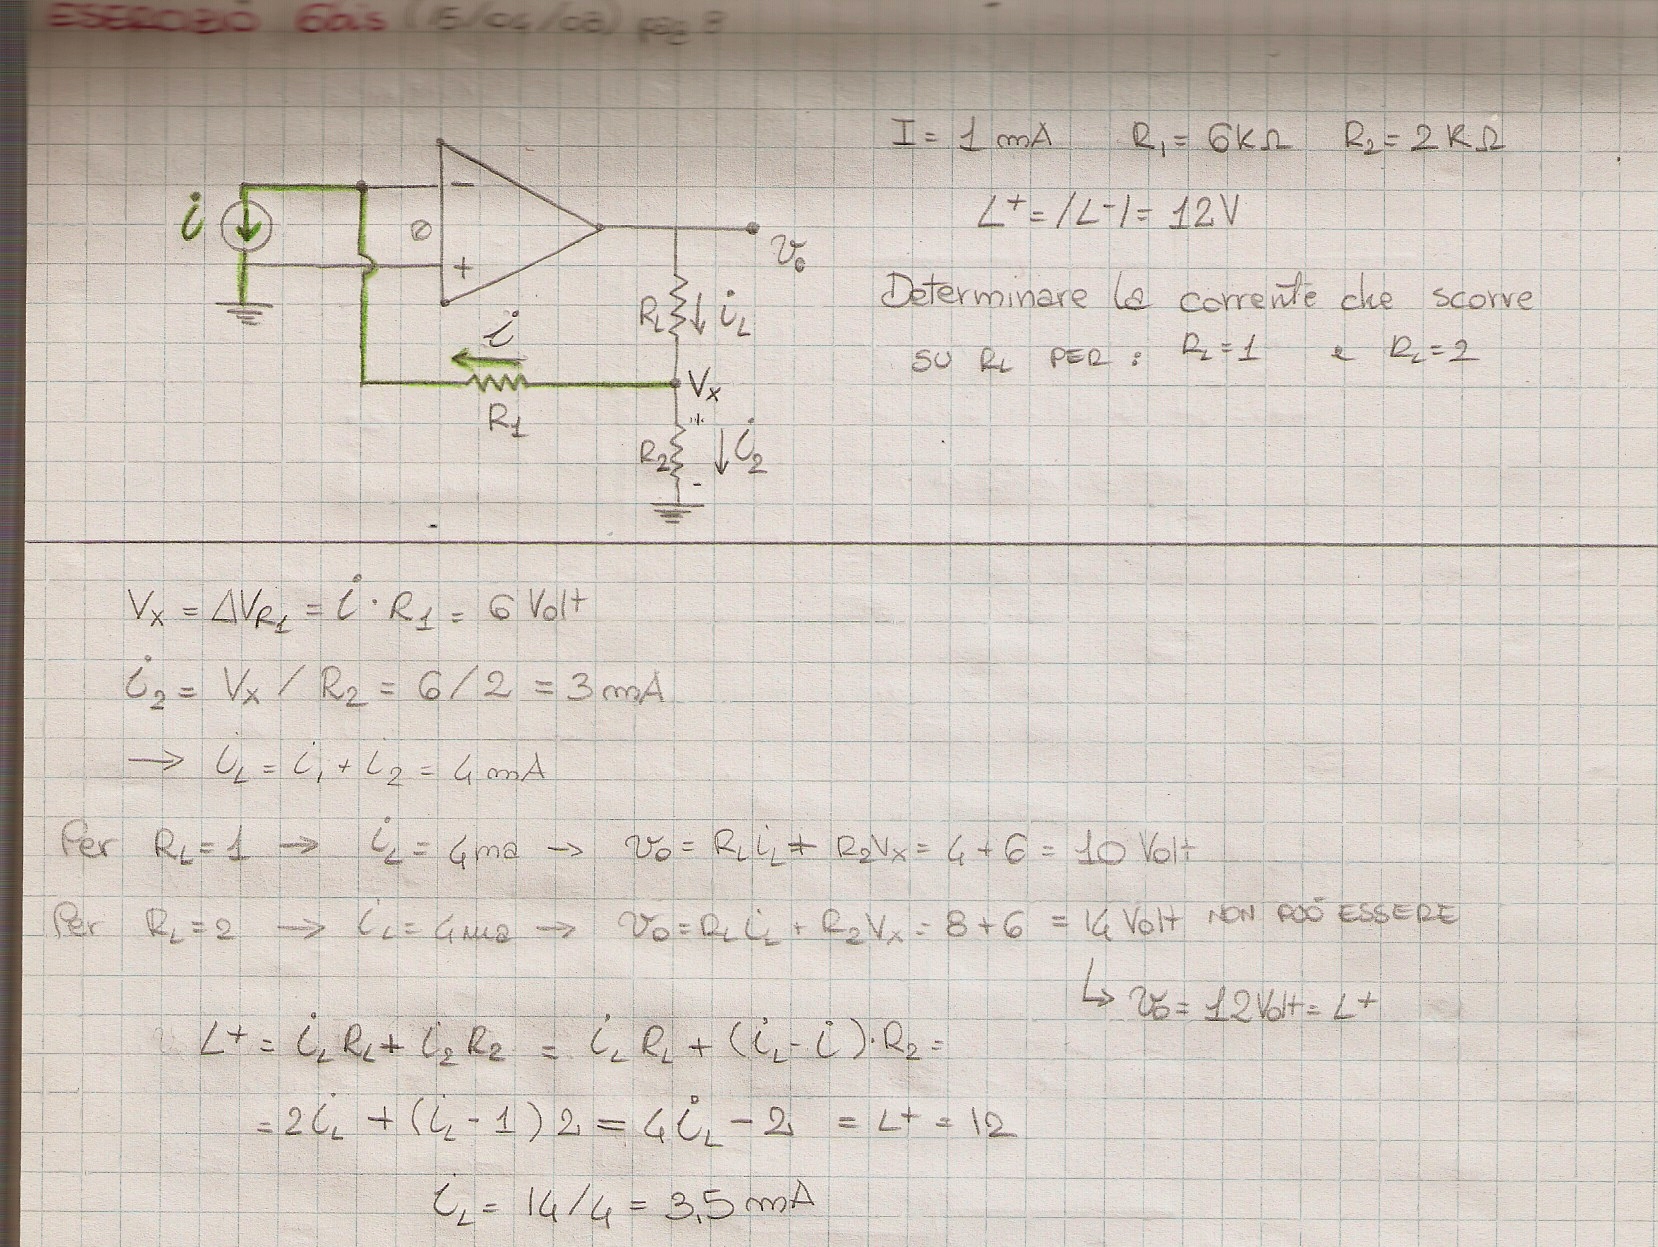 ESERCIZIO 6bis (15/04/08) pag 8
I = 1 mA R₁ = 6KΩ R₂ = 2KΩ
L⁺ = |L⁻| = 12V
Determinare la corrente che scorre
SU RL PER : RL=1 e RL=2
i
-
0
+
v₀
RL iL
i
R1
Vx
+
R2 i2
-
Vx = ΔVR1 = i · R1 = 6 Volt
i2 = Vx / R2 = 6/2 = 3 mA
→ iL = i₁ + i2 = 4 mA
Per RL = 1 → iL = 4 ma → v₀ = RL iL + R2Vx = 4 + 6 = 10 Volt
Per RL = 2 → iL = 4 ma → v₀ = RL iL + R2Vx = 8 + 6 = 14 Volt NON PUÒ ESSERE
↳ v₀ = 12 Volt = L⁺
L⁺ = iL RL + i2 R2 = iL RL + (iL - i) · R2 =
= 2iL + (iL - 1) 2 = 4iL - 2 = L⁺ = 12
iL = 14/4 = 3,5 mA